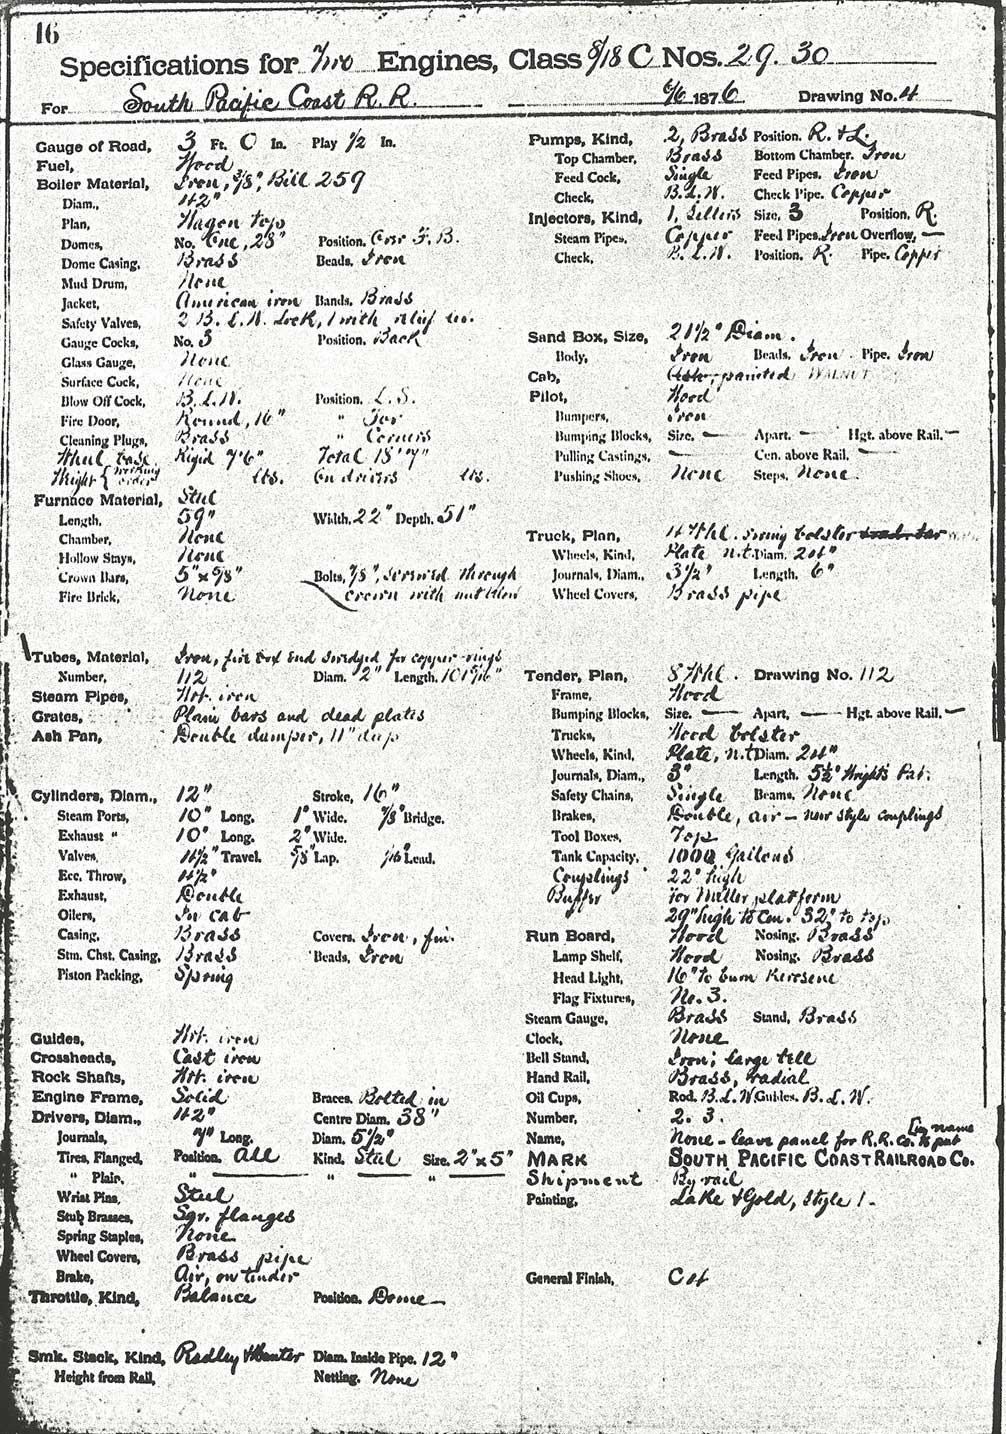 16
Specifications for Two Engines, Class 8/18 C Nos. 29. 30
For South Pacific Coast R. R. 6/6 1876 Drawing No. 4
Gauge of Road, 3 Ft. 0 In. Play 1/2 In.
Fuel, Wood
Boiler Material, Iron, 3/8", Bill 259
Diam., 42"
Plan, Wagon top
Domes, No. One, 28" Position. Over F. B.
Dome Casing, Brass Beads. Iron
Mud Drum, None
Jacket, American iron Bands. Brass
Safety Valves, 2 B. L. W. Lock, 1 with relief lev.
Gauge Cocks, No. 3 Position. Back
Glass Gauge, None
Surface Cock, None
Blow Off Cock, B. L. W. Position. L. S.
Fire Door, Round, 16" " For
Cleaning Plugs, Brass " Corners
Wheel base Rigid 7'6" Total 18'7"
Weight { working order lbs. On drivers lbs.
Furnace Material, Steel
Length, 59" Width. 22" Depth. 51"
Chamber, None
Hollow Stays, None
Crown Bars, 5" x 5/8" Bolts, 7/8", screwed through
Fire Brick, None crown with nut below
Tubes, Material, Iron, fire box end swedged for copper rings
Number, 112 Diam. 2" Length.
Steam Pipes, Wot. iron
Grates, Plain bars and dead plates
Ash Pan, Double damper, 11" deep
Cylinders, Diam., 12" Stroke, 16"
Steam Ports, 10" Long. 1" Wide. 7/8" Bridge.
Exhaust " 10" Long. 2" Wide.
Valves, 4 1/2" Travel. 5/8" Lap. 1/16" Lead.
Ecc. Throw, 4 1/2"
Exhaust, Double
Oilers, In cab
Casing, Brass Covers. Iron, fin.
Stm. Chst. Casing, Brass Beads, Iron
Piston Packing, Spring
Guides, Wot. iron
Crossheads, Cast iron
Rock Shafts, Wot. iron
Engine Frame, Solid Braces. Bolted in
Drivers, Diam., 42" Centre Diam. 38"
Journals, 7" Long. Diam. 5 1/2"
Tires, Flanged, Position. All Kind. Steel Size. 2" x 5"
" Plain, " — " — " —
Wrist Pins, Steel
Stub Brasses, Sqr. flanges
Spring Staples, None
Wheel Covers, Brass pipe
Brake, Air, on tender
Throttle, Kind, Balance Position. Dome
Smk. Stack, Kind, Radley & Hunter Diam. Inside Pipe. 12"
Height from Rail, Netting. None
Pumps, Kind, 2, Brass Position. R. & L.
Top Chamber, Brass Bottom Chamber. Iron
Feed Cock, Single Feed Pipes. Iron
Check, B. L. W. Check Pipe. Copper
Injectors, Kind, 1, Sellers Size. 3 Position. R.
Steam Pipes, Copper Feed Pipes. Iron Overflow, —
Check, B. L. W. Position. R. Pipe. Copper
Sand Box, Size, 21 1/2" Diam.
Body, Iron Beads. Iron Pipe. Iron
Cab, Ash, painted WALNUT
Pilot, Wood
Bumpers, Iron
Bumping Blocks, Size. — Apart. — Hgt. above Rail. —
Pulling Castings, — Cen. above Rail. —
Pushing Shoes, None Steps. None
Truck, Plan, 4 Whl. swing bolster
Wheels, Kind, Plate n.t Diam. 24"
Journals, Diam., 3 1/2" Length. 6"
Wheel Covers, Brass pipe
Tender, Plan, 8 Whl. Drawing No. 112
Frame, Wood
Bumping Blocks, Size. — Apart, — Hgt. above Rail. —
Trucks, Wood bolster
Wheels, Kind, Plate, n.t Diam. 24"
Journals, Diam., 3" Length. 5 1/2" Wright's Pat.
Safety Chains, Single Beams. None
Brakes, Double, air — new style couplings
Tool Boxes, Top
Tank Capacity, 1000 Gallons
Couplings 22" high
Buffer for Miller platform
29" high to Cen. 32" to top
Run Board, Wood Nosing. Brass
Lamp Shelf, Wood Nosing. Brass
Head Light, 16" to burn Kerosene
Flag Fixtures, No. 3.
Steam Gauge, Brass Stand, Brass
Clock, None
Bell Stand, Iron; large bell
Hand Rail, Brass, radial
Oil Cups, Rod. B. L. W. Guides. B. L. W.
Number, 2. 3.
Name, None — leave panel for R. R. Co. to put in name
MARK SOUTH PACIFIC COAST RAILROAD CO.
Shipment By rail
Painting, Lake & Gold, Style 1.
General Finish, C 4